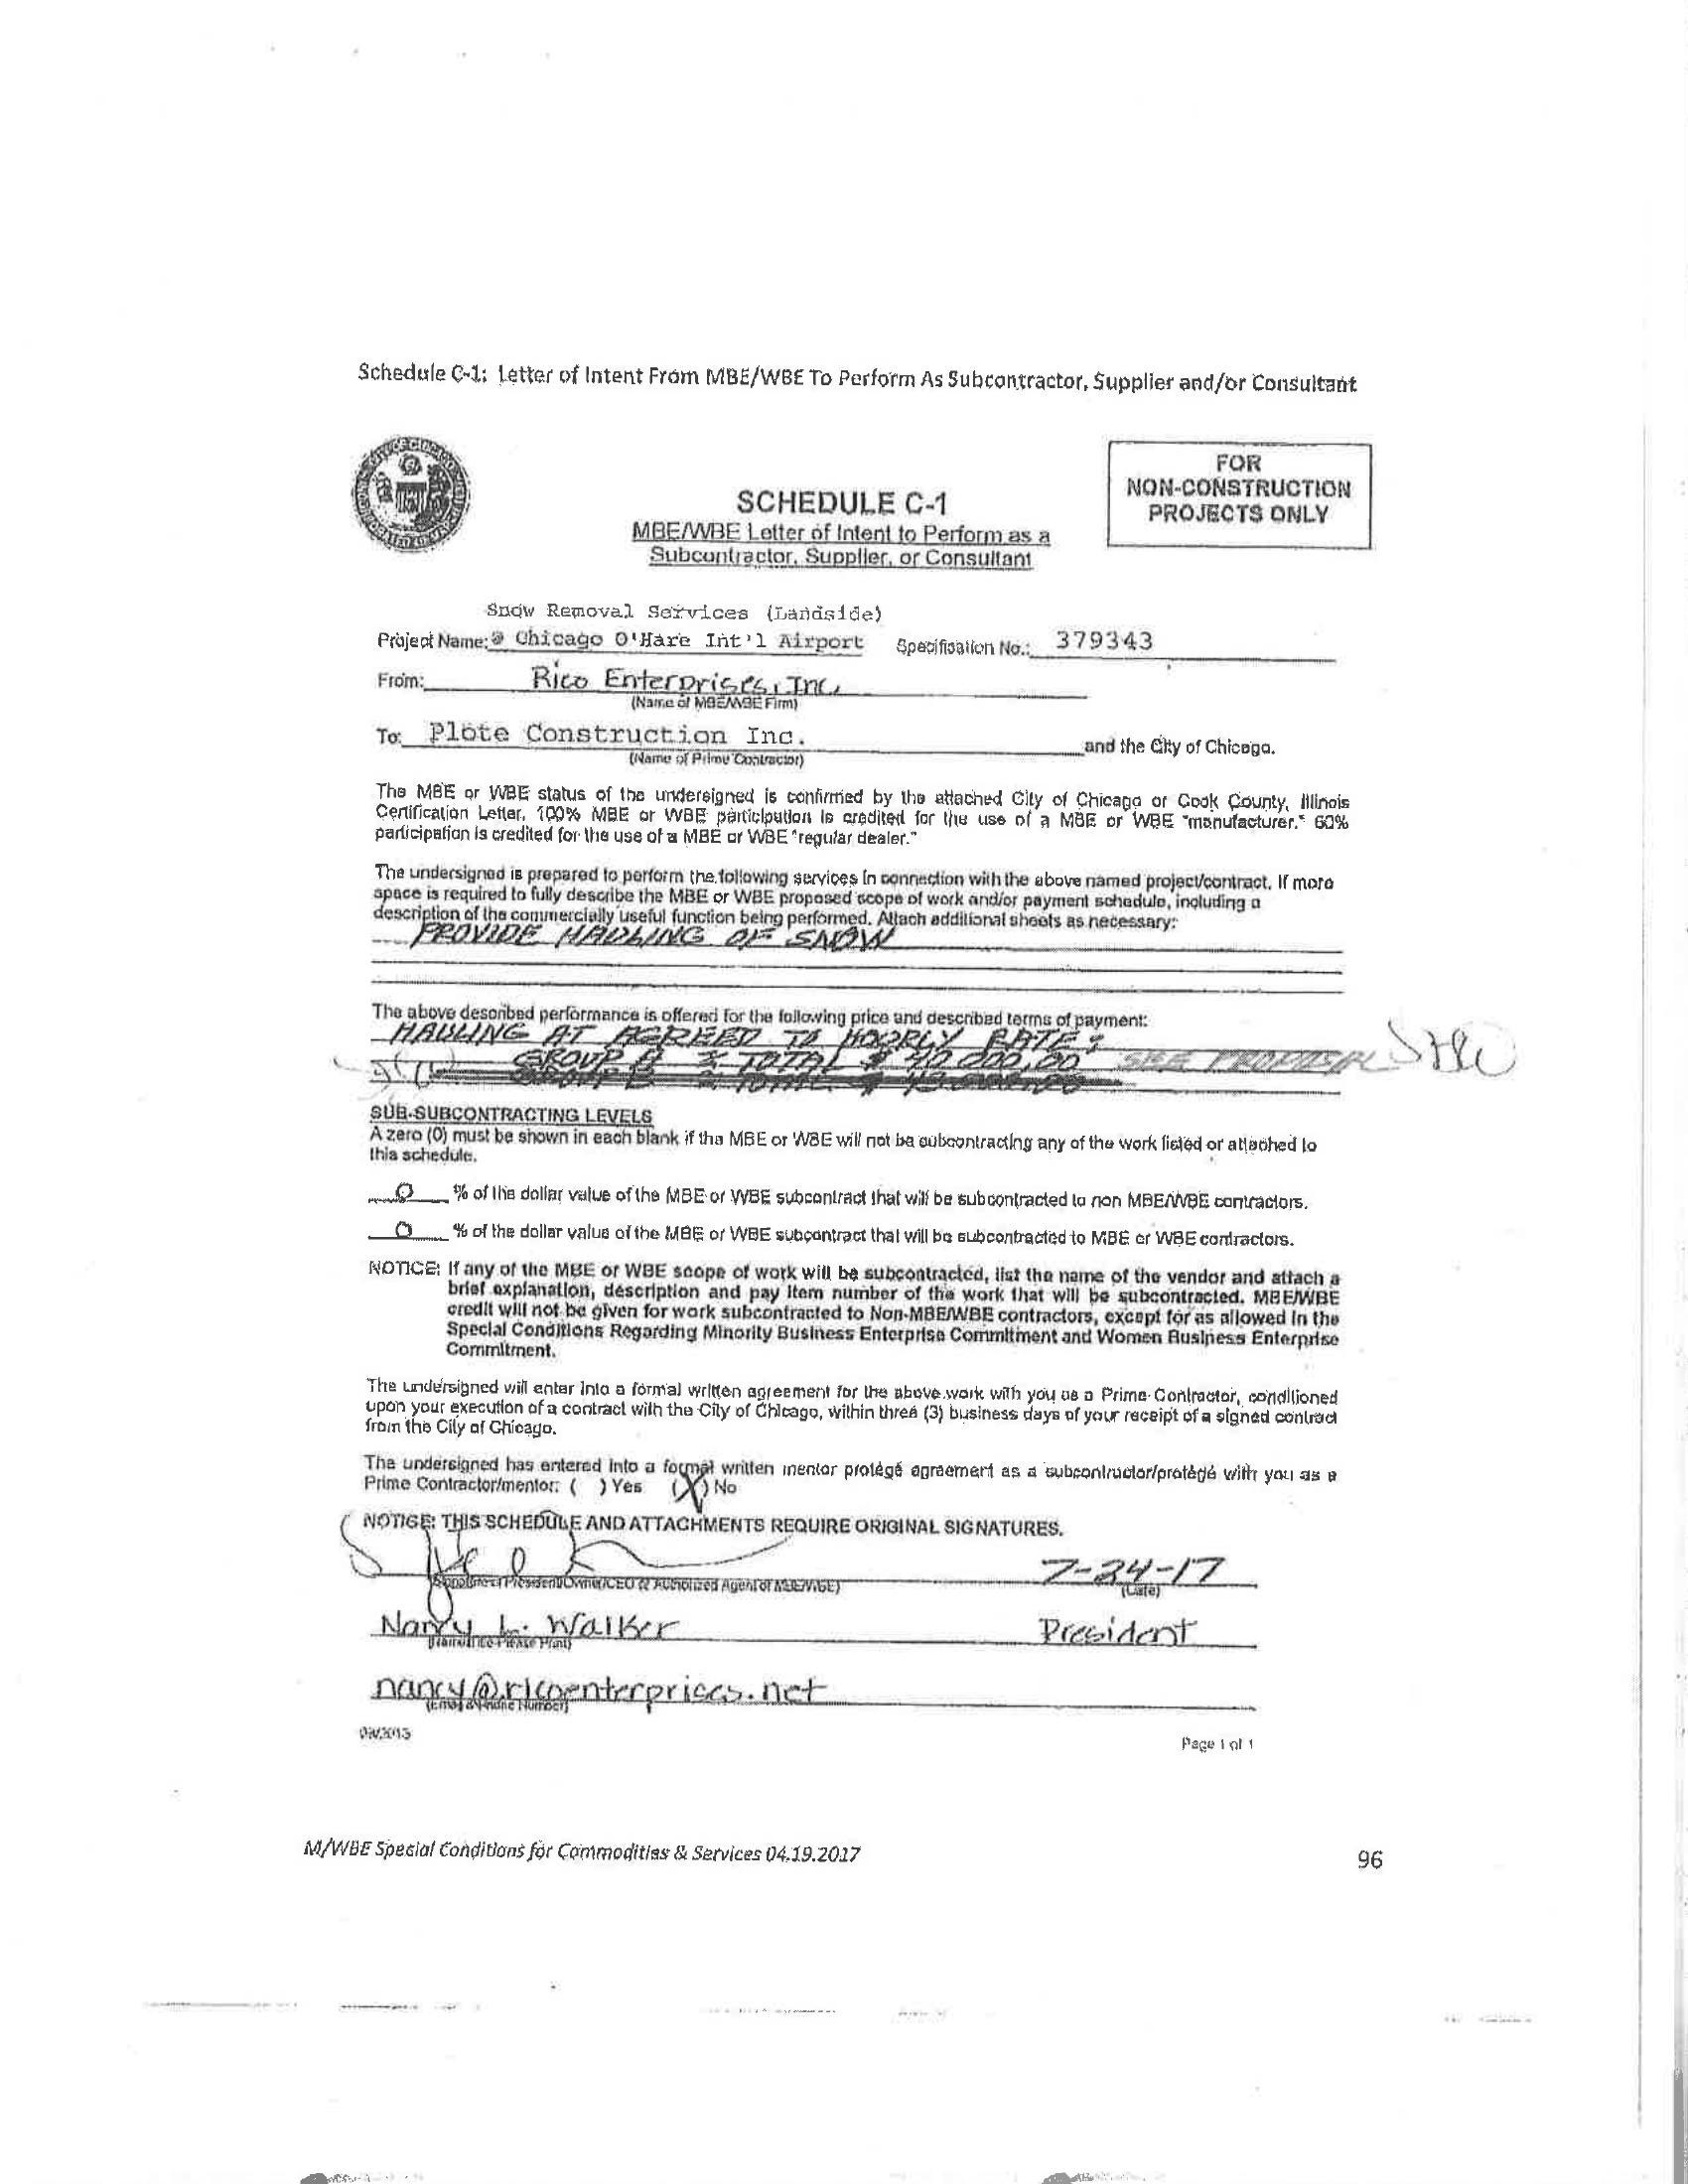 Schedule C-1: Letter of Intent From MBE/WBE To Perform As Subcontractor, Supplier and/or Consultant
FOR
NON-CONSTRUCTION
PROJECTS ONLY
SCHEDULE C-1
MBE/WBE Letter of Intent to Perform as a
Subcontractor, Supplier, or Consultant
Snow Removal Services (Landside)
Project Name: @ Chicago O'Hare Int'l Airport Specification No.: 379343
From: Rico Enterprises, Inc.
(Name of MBE/WBE Firm)
To: Plote Construction Inc. and the City of Chicago.
(Name of Prime Contractor)
The MBE or WBE status of the undersigned is confirmed by the attached City of Chicago or Cook County, Illinois
Certification Letter. 100% MBE or WBE participation is credited for the use of a MBE or WBE "manufacturer." 60%
participation is credited for the use of a MBE or WBE "regular dealer."
The undersigned is prepared to perform the following services in connection with the above named project/contract. If more
space is required to fully describe the MBE or WBE proposed scope of work and/or payment schedule, including a
description of the commercially useful function being performed. Attach additional sheets as necessary:
PROVIDE HAULING OF SNOW
The above described performance is offered for the following price and described terms of payment:
HAULING AT AGREED TO HOURLY RATE:
GROUP A TOTAL $ 40,000.00 SEE
SUB-SUBCONTRACTING LEVELS
A zero (0) must be shown in each blank if the MBE or WBE will not be subcontracting any of the work listed or attached to
this schedule.
0 % of the dollar value of the MBE or WBE subcontract that will be subcontracted to non MBE/WBE contractors.
0 % of the dollar value of the MBE or WBE subcontract that will be subcontracted to MBE or WBE contractors.
NOTICE: If any of the MBE or WBE scope of work will be subcontracted, list the name of the vendor and attach a
brief explanation, description and pay item number of the work that will be subcontracted. MBE/WBE
credit will not be given for work subcontracted to Non-MBE/WBE contractors, except for as allowed in the
Special Conditions Regarding Minority Business Enterprise Commitment and Women Business Enterprise
Commitment.
The undersigned will enter into a formal written agreement for the above work with you as a Prime Contractor, conditioned
upon your execution of a contract with the City of Chicago, within three (3) business days of your receipt of a signed contract
from the City of Chicago.
The undersigned has entered into a formal written mentor protégé agreement as a subcontractor/protégé with you as a
Prime Contractor/mentor: ( ) Yes (X) No
NOTICE: THIS SCHEDULE AND ATTACHMENTS REQUIRE ORIGINAL SIGNATURES.
7-24-17
(Signature of President/Owner/CEO or Authorized Agent of MBE/WBE) (Date)
Nancy L. Walker President
(Name/Title-Please Print)
nancy@ricoenterprises.net
(Email & Phone Number)
Page 1 of 1
M/WBE Special Conditions for Commodities & Services 04.19.2017 96